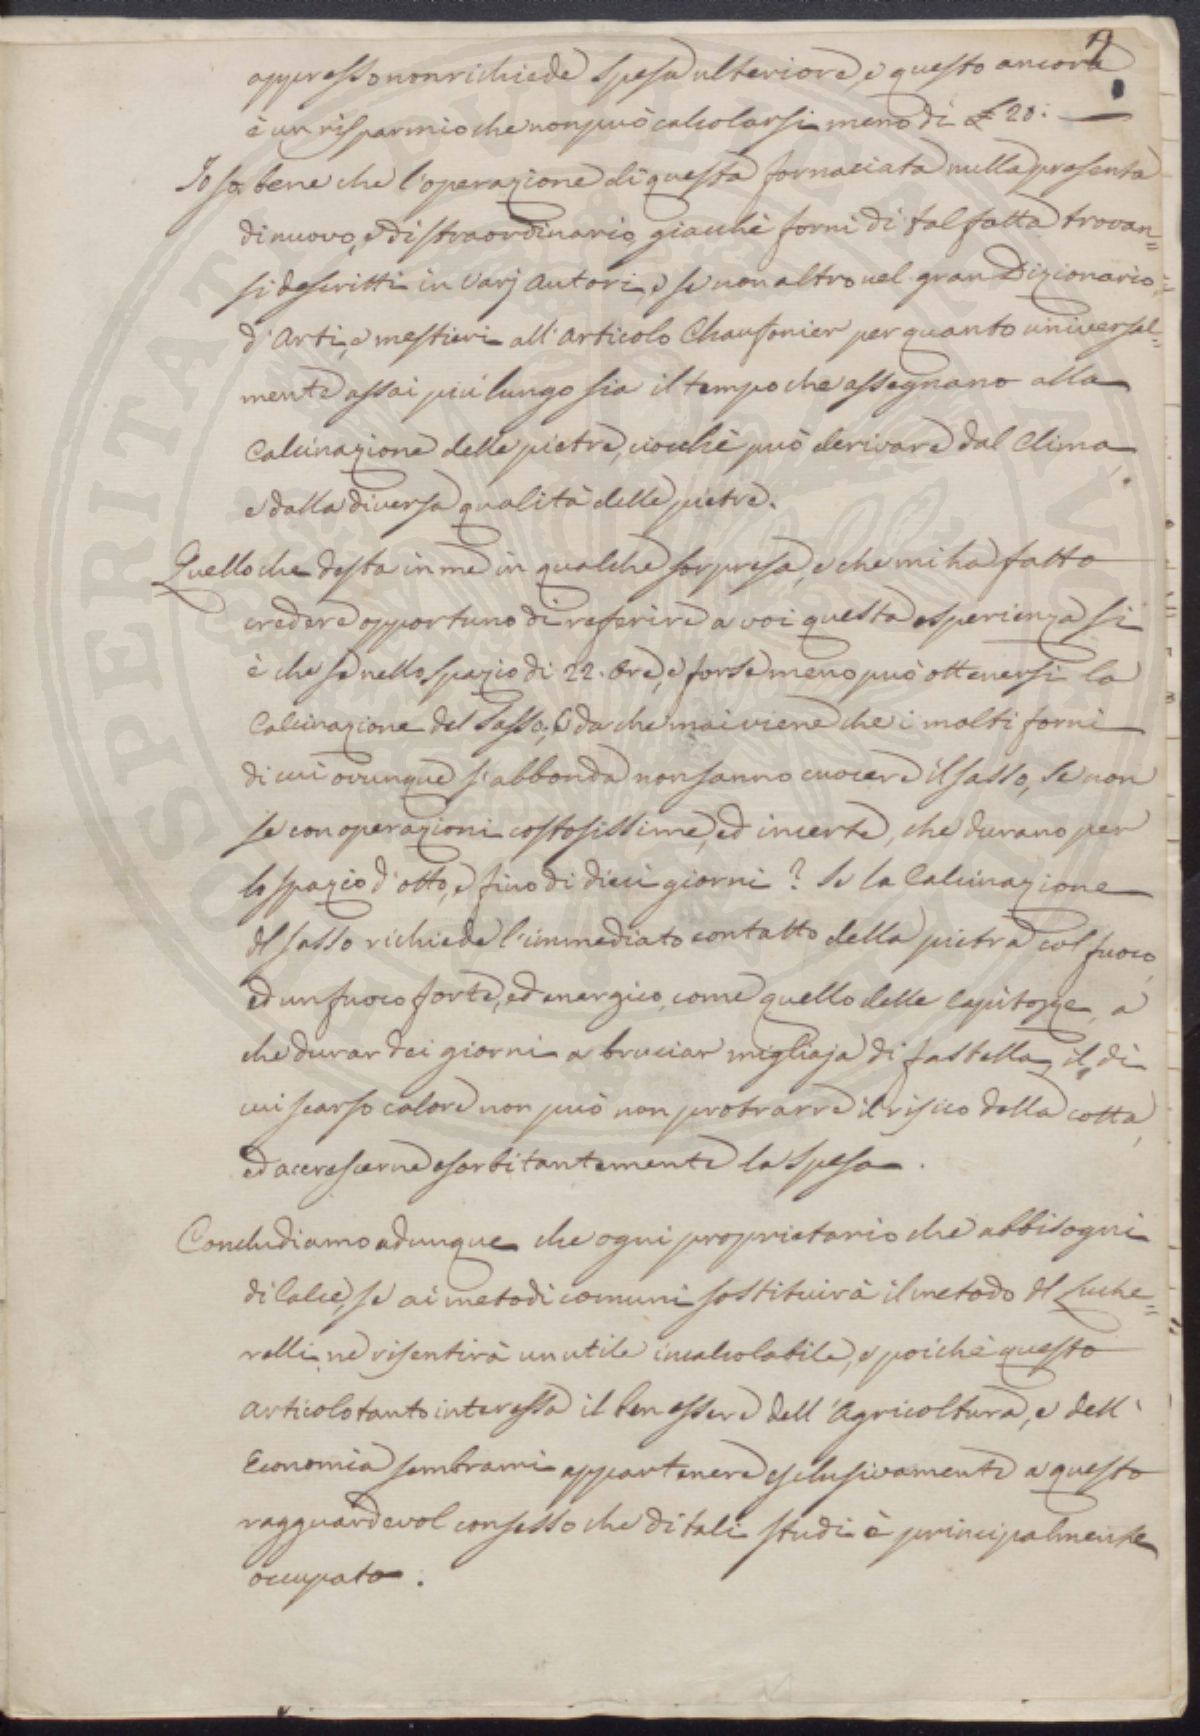 appresso non richiede spesa ulteriore, e questo ancora
è un risparmio che non può calcolarsi meno di £ 20: —
Io so bene che l'operazione di questa fornaciata nulla presenta
di nuovo, e di straordinario, giacchè forni di tal fatta trovan=
si descritti in varj Autori, e se non altro nel gran Dizionario
d'Arti, e mestieri all'Articolo Chaufonier per quanto universal=
mente assai più lungo sia il tempo che assegnano alla
Calcinazione delle pietre, ciocchè può derivare dal Clima,
e dalla diversa qualità delle pietre.
Quello che desta in me in qualche sorpresa, e che mi ha fatto
credere opportuno di referire a voi questa esperienza si
è che se nello spazio di 22. Ore, e forse meno può ottenersi la
Calcinazione del Sasso, da che mai viene che i molti forni
di cui ovunque s'abbonda non sanno cuocere il sasso, se non
se con operazioni costosissime, ed incerte, che durano per
lo spazio d'otto, e fino di dieci giorni? Se la Calcinazione
del sasso richiede l'immediato contatto della pietra col fuoco,
ed un fuoco forte, ed energico, come quello delle Capitozze, a
che durar dei giorni a bruciar migliaja di fastella, il di
cui scarso calore non può non protrarre il risico della cotta,
ed accrescerne esorbitantemente la spesa.
Concludiamo adunque che ogni proprietario che abbisogni
di Calce, se ai metodi comuni sostituirà il metodo del Luche=
relli, ne risentirà un utile incalcolabile, e poichè questo
articolo tanto interessa il ben essere dell'Agricoltura, e dell'
Economia sembrami appartenere esclusivamente a questo
ragguardevol consesso che di tali studi è principalmente
occupato.
SPERITATI